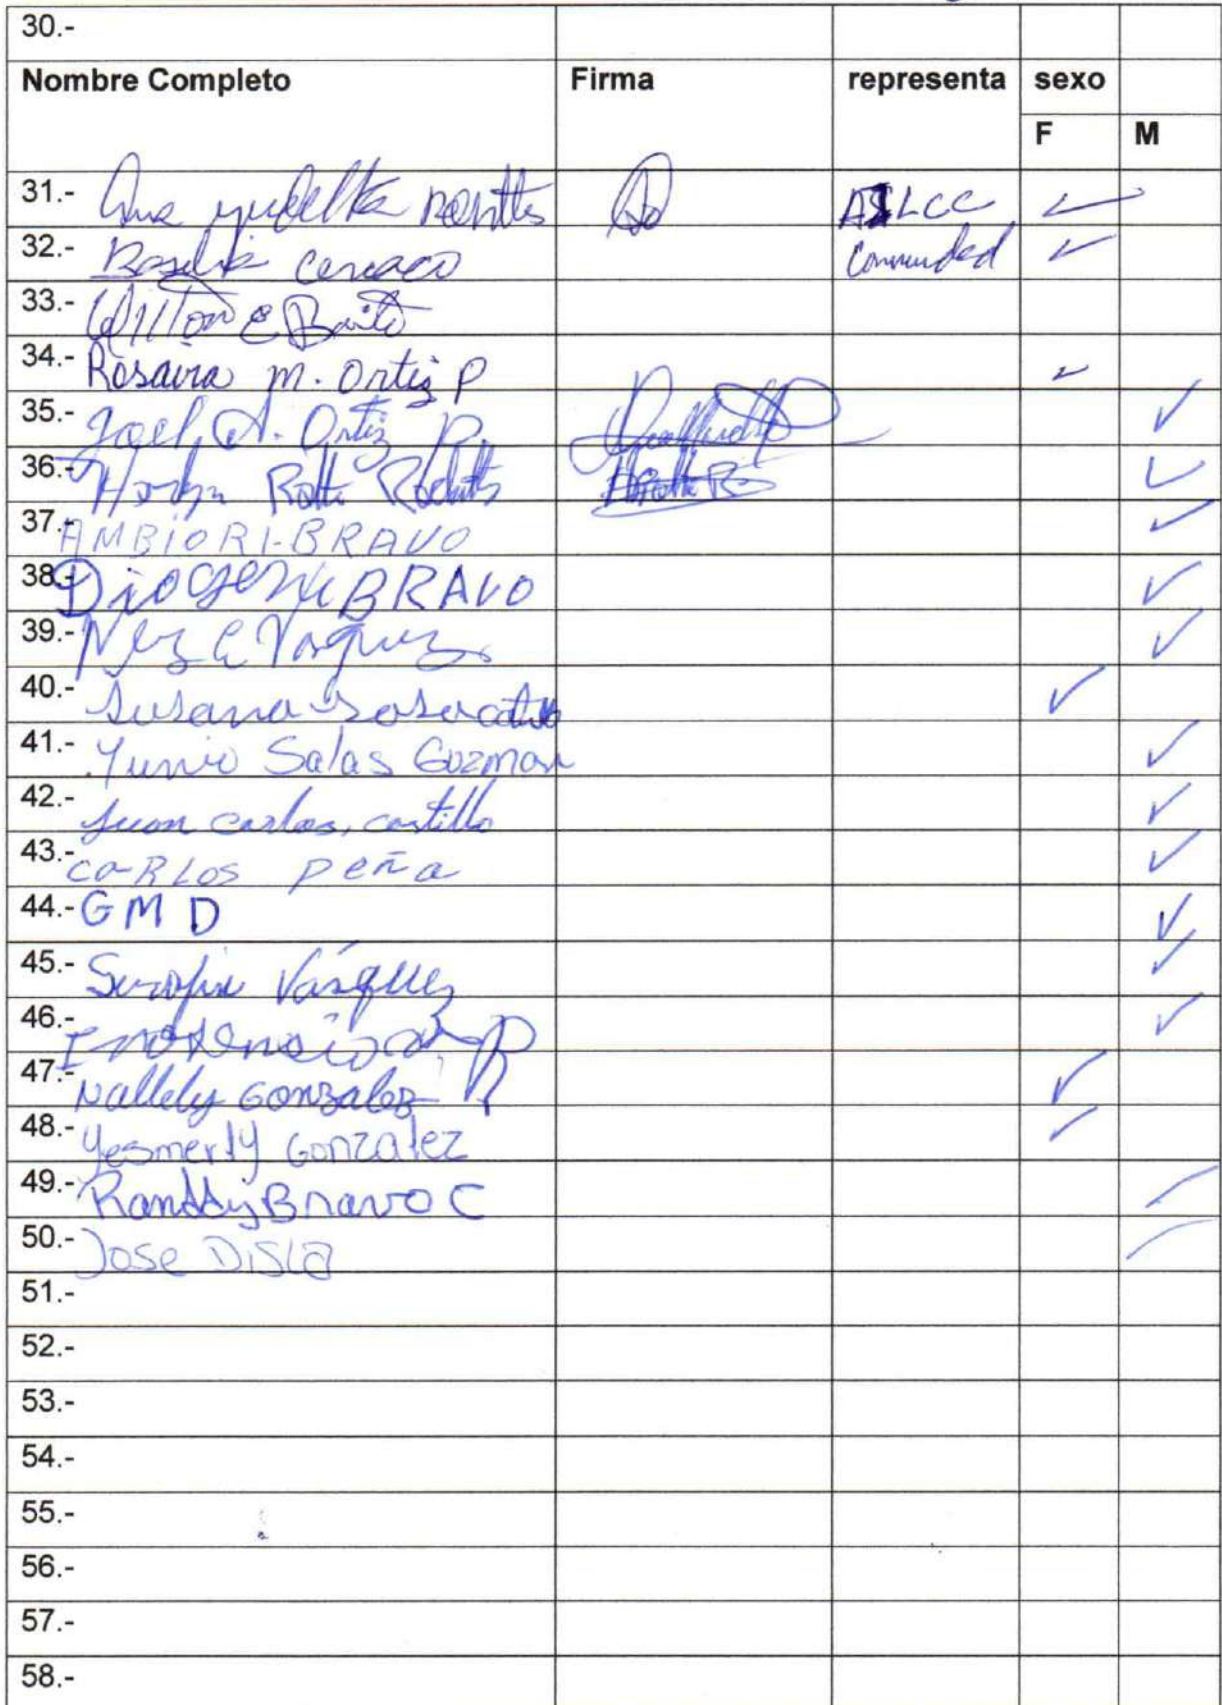 30.-
Nombre Completo Firma representa sexo
F M
31.- Ana yudelka
32.- Basilia Comunidad
33.- Wilton E Brito
34.- Rosaira M. Ortiz P
35.- Joel A. Ortiz P.
36.-
37.- AMBIORI-BRAVO
38.- Diogene BRAVO
39.- Vasquez
40.- Susana Sosa
41.- Yunio Salas Guzman
42.- Juan carlos, castillo
43.- caRLOS peña
44.- GMD
45.- Serafin Vásquez
46.-
47.- Nallely Gonzalez
48.- Yesmerly Gonzalez
49.- Randdy Bravo C
50.- Jose Disla
51.-
52.-
53.-
54.-
55.-
56.-
57.-
58.-